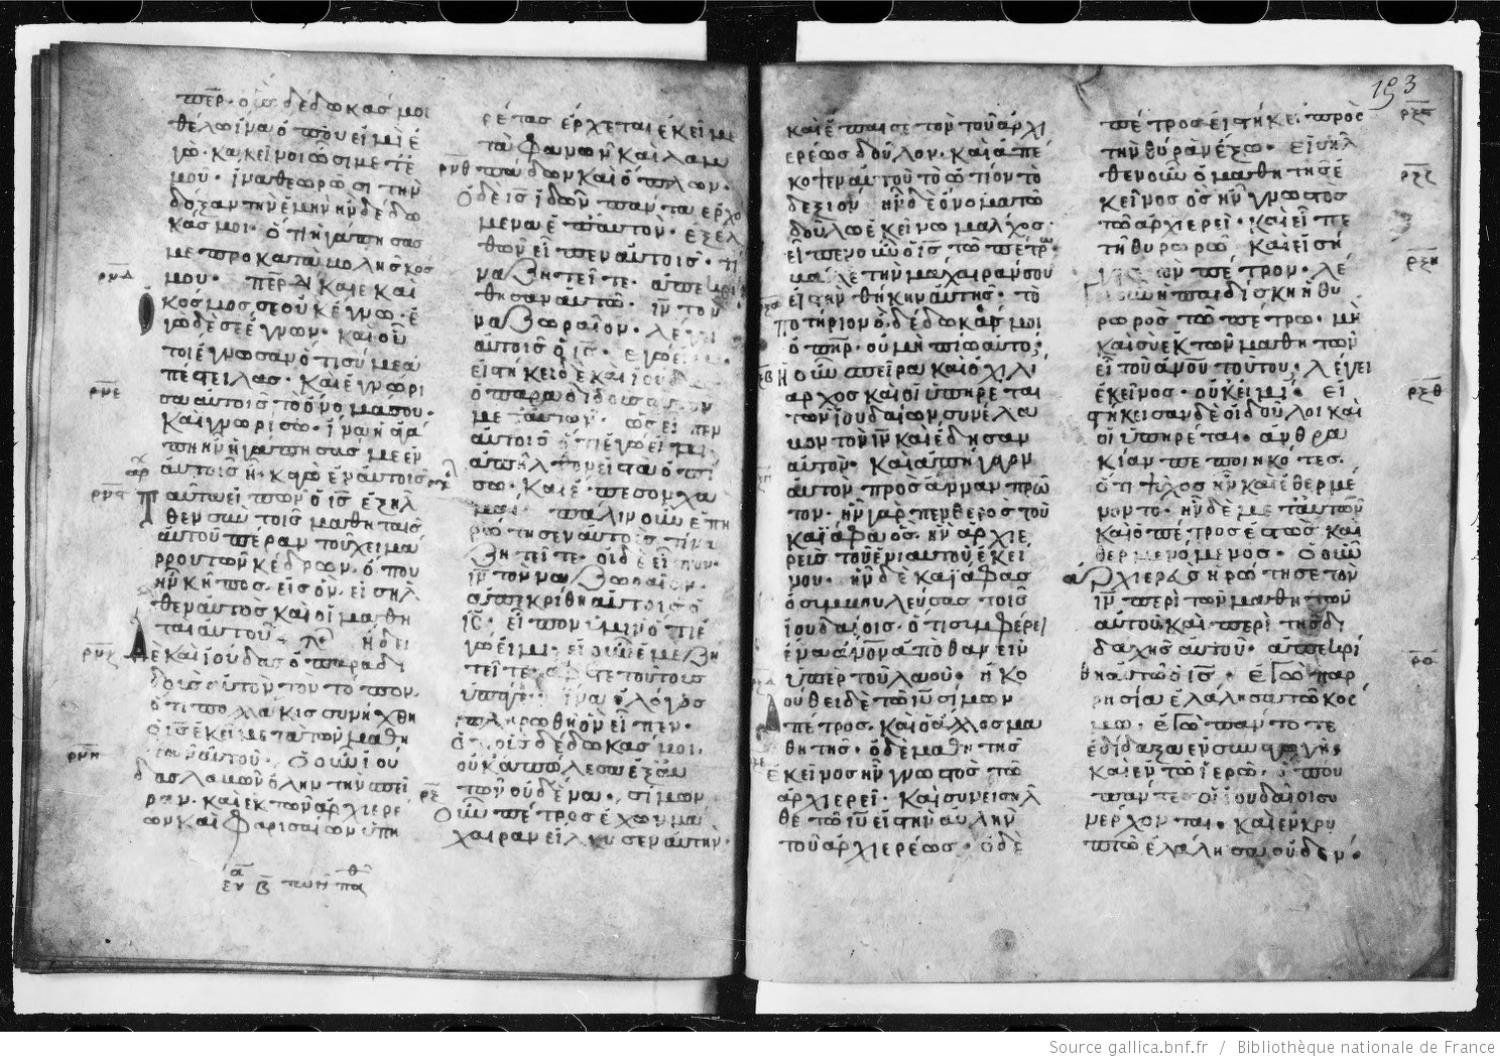 πηρ· οὓς δέδωκας μοι
θέλω ἵνα ὅπου εἰμὶ ἐ
γὼ· κακεῖνοι ὦσι μετ ἐ
μοῦ· ἵνα θεωρῶσι τὴν
δόξαν τὴν ἐμὴν ἣν δέδω
κάς μοι· ὅτι ἠγάπησας
με προ καταβολῆς κος
μου· πηρ δικαιε καὶ
κόσμος σε οὐκ ἔγνω· ἐ
γὼ δέ σε ἔγνων· καὶ οὗ
τοι ἔγνωσαν ὅτι σύ με ἀ
πέστειλας· καὶ ἐγνώρι
σα αυτοῖς τὸ ὄνομά σου·
καὶ γνωρίσω· ἵνα ἡ ἀγά
πη ἣν ἠγάπησάς με ἐν
αυτοῖς ἦ· καγὼ ἐν αυτοῖς
Ταῦτα εἰπὼν ὁ ις ἐξῆλ
θεν σὺν τοῖς μαθηταῖς
αὐτοῦ πέραν τοῦ χειμά
ρρου τῶν κέδρων· ὅπου
ἦν κῆπος· εἰς ὃν εἰσῆλ
θεν αὐτὸς καὶ οἱ μαθη
ταὶ αὐτοῦ· Ἤδει
δὲ καὶ ἰούδας ὁ παραδι
δοὺς αὐτὸν τὸν τόπον·
ὅτι πολλάκις συνήχθη
ὁ ις ἐκεῖ μετὰ τῶν μαθη
τῶν αὐτοῦ· Ὁ οὖν ἰού
δας λαβὼν ὅλην τὴν σπεῖ
ραν· καὶ ἐκ τῶν ἀρχιερέ
ων καὶ φαρισαίων ὑπη
ρέτας ἔρχεται ἐκεῖ με
τὰ φανῶν καὶ λαμ
πάδων καὶ ὅπλων·
Ὁ δὲ ις ἰδὼν πάντα τὰ ἐρχό
μενα ἐπ αυτὸν· ἐξελ
θὼν εἶπεν αυτοῖς· τί
να ζητεῖτε· ἀπεκρί
θησαν αὐτῶ· ιν τὸν
ναζωραῖον· λέγει
αυτοῖς ὁ ις· ἐγώ εἰμι·
εἱστήκει δὲ καὶ ἰούδας
ὁ παραδιδοὺς αὐτὸν
μετ αὐτῶν· ὡς εἶπεν
αὐτοῖς ὅτι ἐγώ εἰμι·
ἀπῆλθον εἰς τὰ ὀπί
σω· καὶ ἔπεσον χα
μαί· πάλιν οὖν ἐπη
ρώτησεν αὐτοὺς τίνα
ζητεῖτε· οἱ δὲ εἶπον·
ιν τὸν ναζωραῖον·
ἀπεκρίθη αὐτοῖς ὁ
ις· εἶπον ὑμῖν ὅτι ἐ
γώ εἰμι· εἰ οὖν ἐμὲ ζη
τεῖτε· ἄφετε τούτους
ὑπάγειν· ἵνα ὁ λόγος
πληρωθῆ ὃν εἶπεν·
ὅτι οὓς δέδωκάς μοι·
οὐκ ἀπώλεσα ἐξ αὐ
τῶν οὐδένα· σίμων
οὖν πέτρος ἔχων μά
χαιραν εἵλκυσεν αὐτὴν·
καὶ ἔπαισε τὸν τοῦ ἀρχι
ερέως δοῦλον· καὶ ἀπέ
κοψεν αὐτοῦ τὸ ὠτίον τὸ
δεξιόν· ἦν δὲ ὄνομα τῶ
δούλω ἐκείνω μάλχος·
εἶπεν οὖν ὁ ις τῶ πέτρω·
βάλε τὴν μάχαιράν σου
εἰς τὴν θήκην αὐτῆς· τὸ
ποτήριον ὃ δέδωκάς μοι
ὁ πηρ· οὐ μὴ πίω αυτό;
Ἡ οὖν σπεῖρα καὶ ὁ χιλί
αρχος καὶ οἱ ὑπηρέται
τῶν ἰουδαίων συνέλα
βον τὸν ιν καὶ ἔδησαν
αὐτόν· καὶ ἀπήγαγον
αὐτὸν πρὸς ἄνναν πρῶ
τον· ἦν γὰρ πενθερὸς τοῦ
καϊάφα ὃς ἦν ἀρχιε
ρεὺς τοῦ ἐνιαυτοῦ ἐκεί
νου· ἦν δὲ καϊάφας
ὁ συμβουλεύσας τοῖς
ἰουδαίοις· ὅτι συμφέρει
ἕνα ανον ἀποθανεῖν
ὑπὲρ τοῦ λαοῦ· ἠκο
ούθει δὲ τῶ ιυ σίμων
πέτρος· καὶ ὁ ἄλλος μα
θητής· ὁ δὲ μαθητὴς
ἐκεῖνος ἦν γνωστὸς τῶ
ἀρχιερεῖ· καὶ συνεισῆλ
θε τῶ ιυ εἰς τὴν αυλὴν
τοῦ ἀρχιερέως· ὁ δὲ
193
πέτρος εἱστήκει πρὸς
τὴν θύραν ἔξω· εἰσῆλ
θεν οὖν ὁ μαθητὴς ἐ
κεῖνος ὃς ἦν γνωστὸς
τῶ ἀρχιερεῖ· καὶ εἶπε
τῆ θυρωρῶ καὶ εἰσή
γαγεν τὸν πέτρον· λέ
γει οὖν ἡ παιδίσκη ἡ θυ
ρωρὸς τῶ πέτρω· μὴ
καὶ σὺ ἐκ τῶν μαθητῶν
εἶ τοῦ ανου τούτου· λέγει
ἐκεῖνος· οὐκ εἰμί· εἱ
στήκεισαν δὲ οἱ δοῦλοι καὶ
οἱ ὑπηρέται· ἀνθρα
κίαν πεποιηκότες·
ὅτι ψῦχος ἦν καὶ ἐθερμέ
νοντο· ἦν δὲ μετ αὐτῶν
καὶ ὁ πέτρος ἑστὼς καὶ
θερμενόμενος· Ὁ οὖν
ἀρχιερεὺς ἠρώτησε τὸν
ιν περὶ τῶν μαθητῶν
αὐτοῦ καὶ περὶ τῆς δι
δαχῆς αὐτοῦ· ἀπεκρί
θη αὐτῶ ὁ ις· ἐγὼ παρ
ρησία ἐλάλησα τῶ κός
μω· ἐγὼ πάντοτε
ἐδίδαξα ἐν συναγωγῆ·
καὶ ἐν τῶ ἱερῶ· ὅπου
πάντες οἱ ἰουδαῖοι συ
νέρχονται· καὶ ἐν κρυ
πτῶ ἐλάλησα οὐδέν·
Source gallica.bnf.fr / Bibliothèque nationale de France